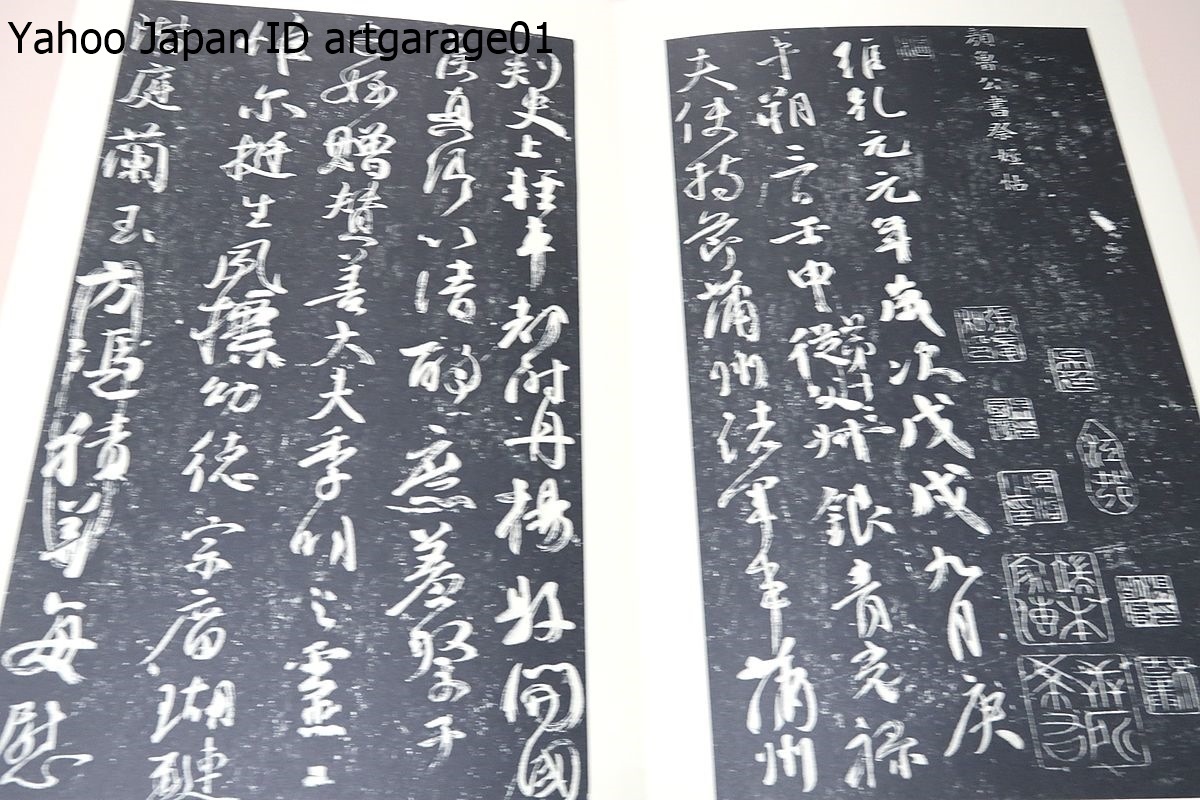 Yahoo Japan ID artgarage01
顔魯公書祭姪帖
維乾元元年歲次戊戌九月庚
午朔三日壬申第十三從父叔銀青光祿
夫使持節蒲州諸軍事蒲州
刺史上輕車都尉丹楊縣開國
侯真卿以清酌庶羞祭于
姪贈贊善大夫季明之靈曰
惟爾挺生夙標幼德宗廟瑚璉
階庭蘭玉方憑積善每慰